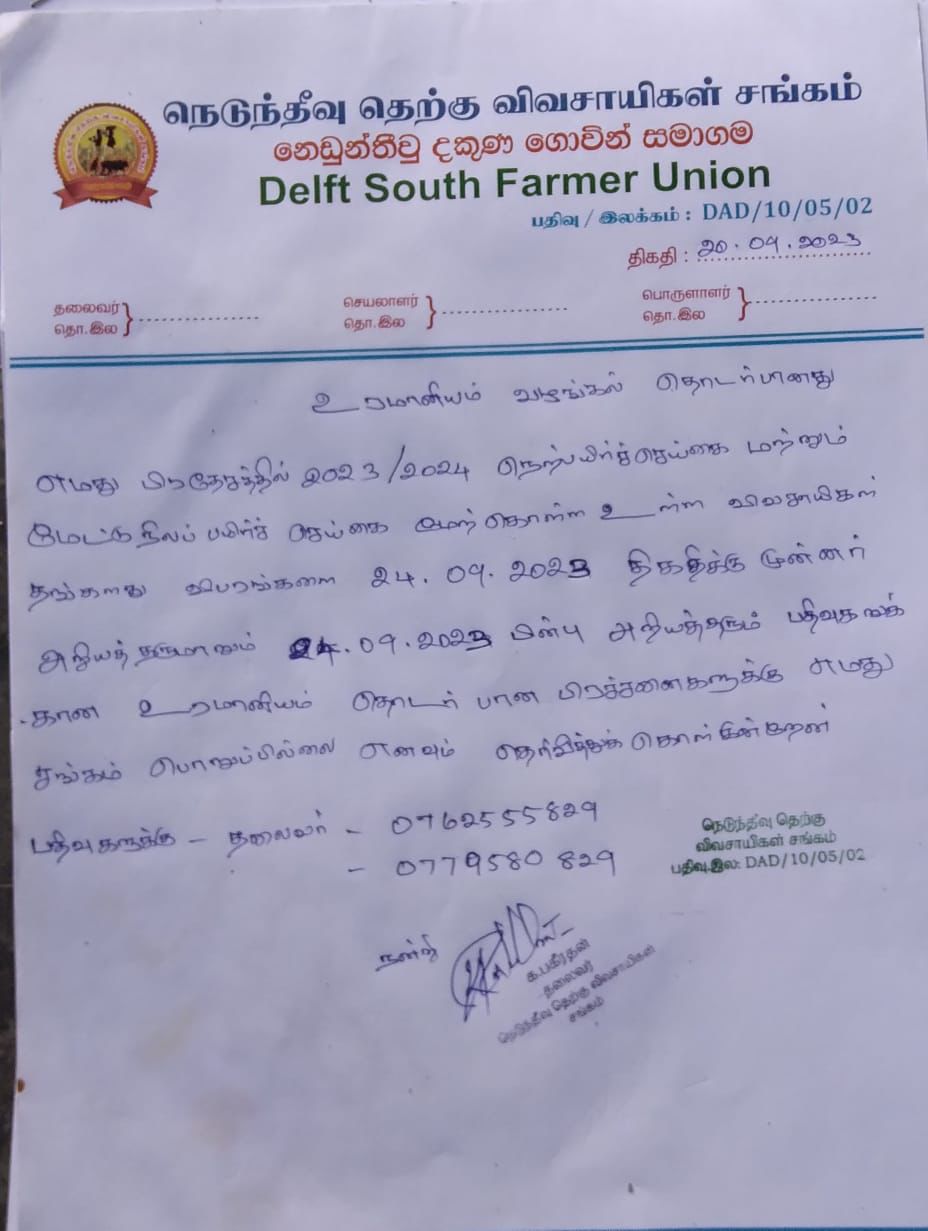 நெடுந்தீவு தெற்கு விவசாயிகள் சங்கம்
නෙඩුන්තීවු දකුණ ගොවීන් සමාගම
Delft South Farmer Union
பதிவு / இலக்கம் : DAD/10/05/02
திகதி : 20.09.2023
தலைவர் தொ.இல } ....................
செயலாளர் தொ.இல } ....................
பொருளாளர் தொ.இல } ....................
உரமானியம் வழங்கல் தொடர்பானது
எமது பிரதேசத்தில் 2023/2024 நெற்பயிர்ச்செய்கை மற்றும்
மேட்டு நிலப் பயிர்ச் செய்கை மேற்கொள்ள உள்ள விவசாயிகள்
தங்களது விபரங்களை 24.09.2023 திகதிக்கு முன்னர்
அறியத் தருமாறும் 24.09.2023 பின்பு அறியத்தரும் பதிவுகளுக்
கான உரமானியம் தொடர்பான பிரச்சனைகளுக்கு எமது
சங்கம் பொறுப்பில்லை எனவும் தெரிவித்துக் கொள்கின்றேன்
பதிவுகளுக்கு - தலைவர் - 0762555829
- 0779580829
நெடுந்தீவு தெற்கு
விவசாயிகள் சங்கம்
பதிவு.இல: DAD/10/05/02
நன்றி
க.பகீரதன்
தலைவர்
நெடுந்தீவு தெற்கு விவசாயிகள்
சங்கம்